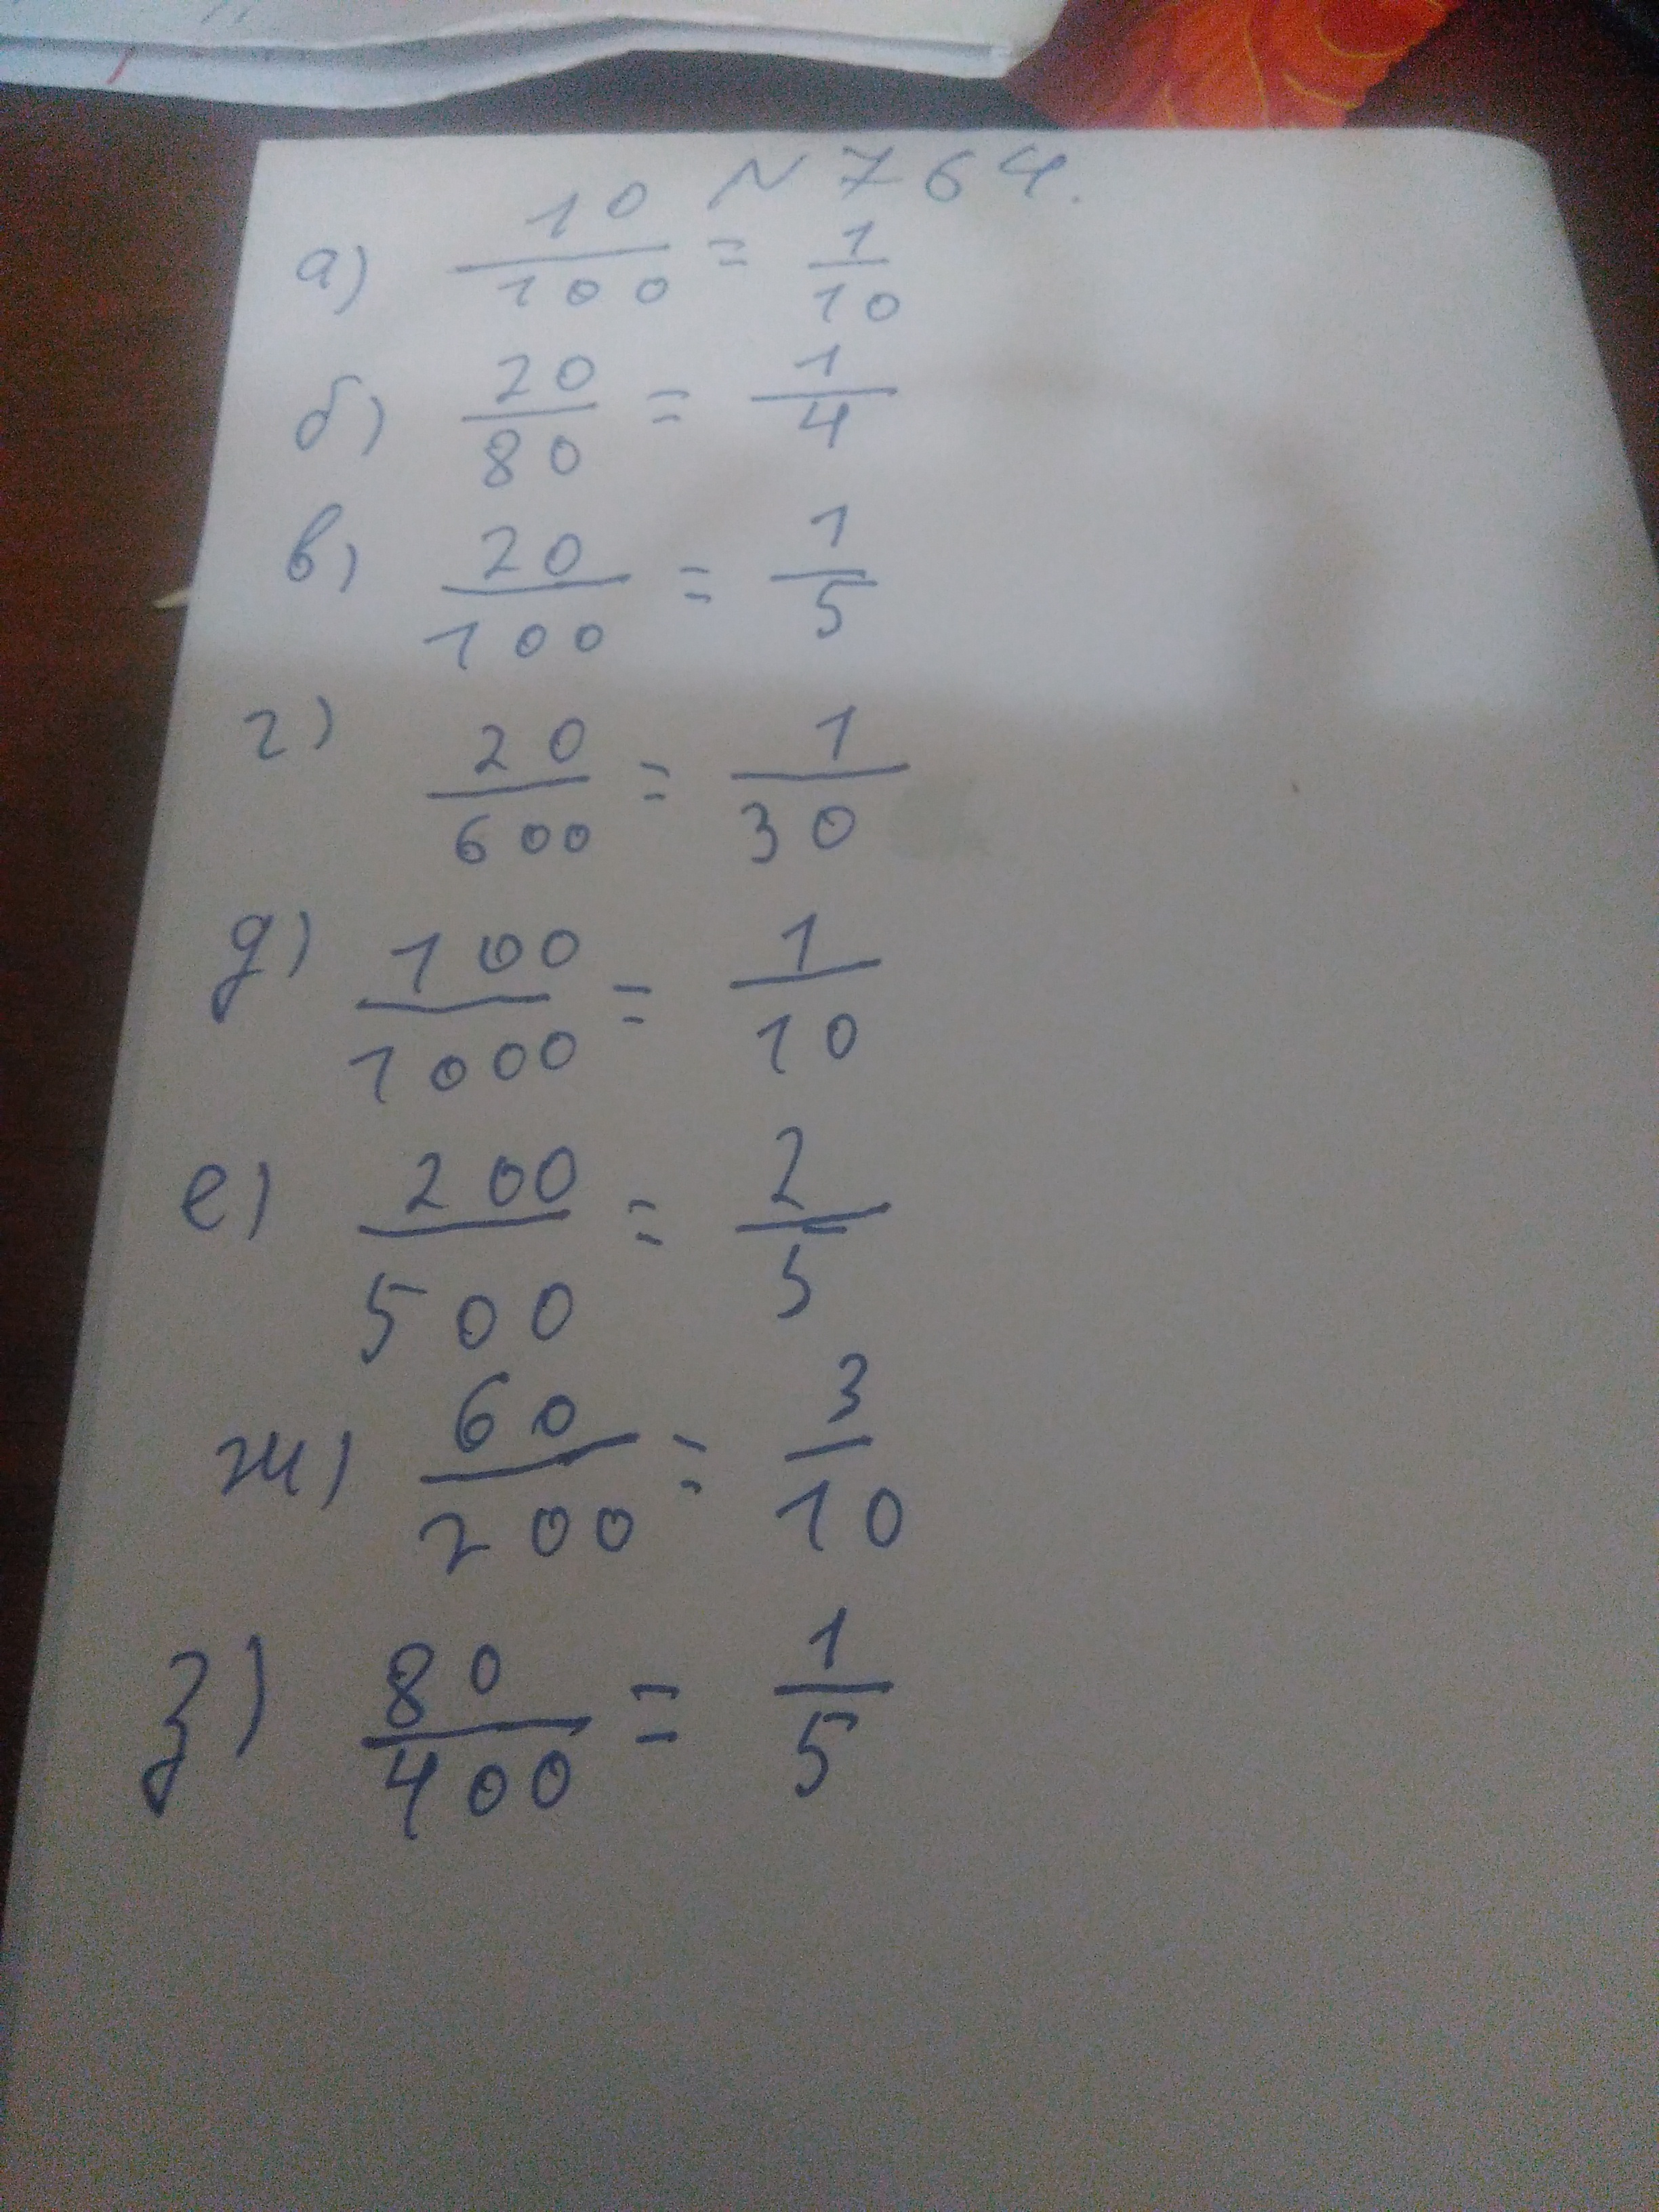 N 764.
а) 10/100 = 1/10
б) 20/80 = 1/4
в) 20/100 = 1/5
г) 20/600 = 1/30
д) 100/1000 = 1/10
е) 200/500 = 2/5
ж) 60/200 = 3/10
з) 80/400 = 1/5